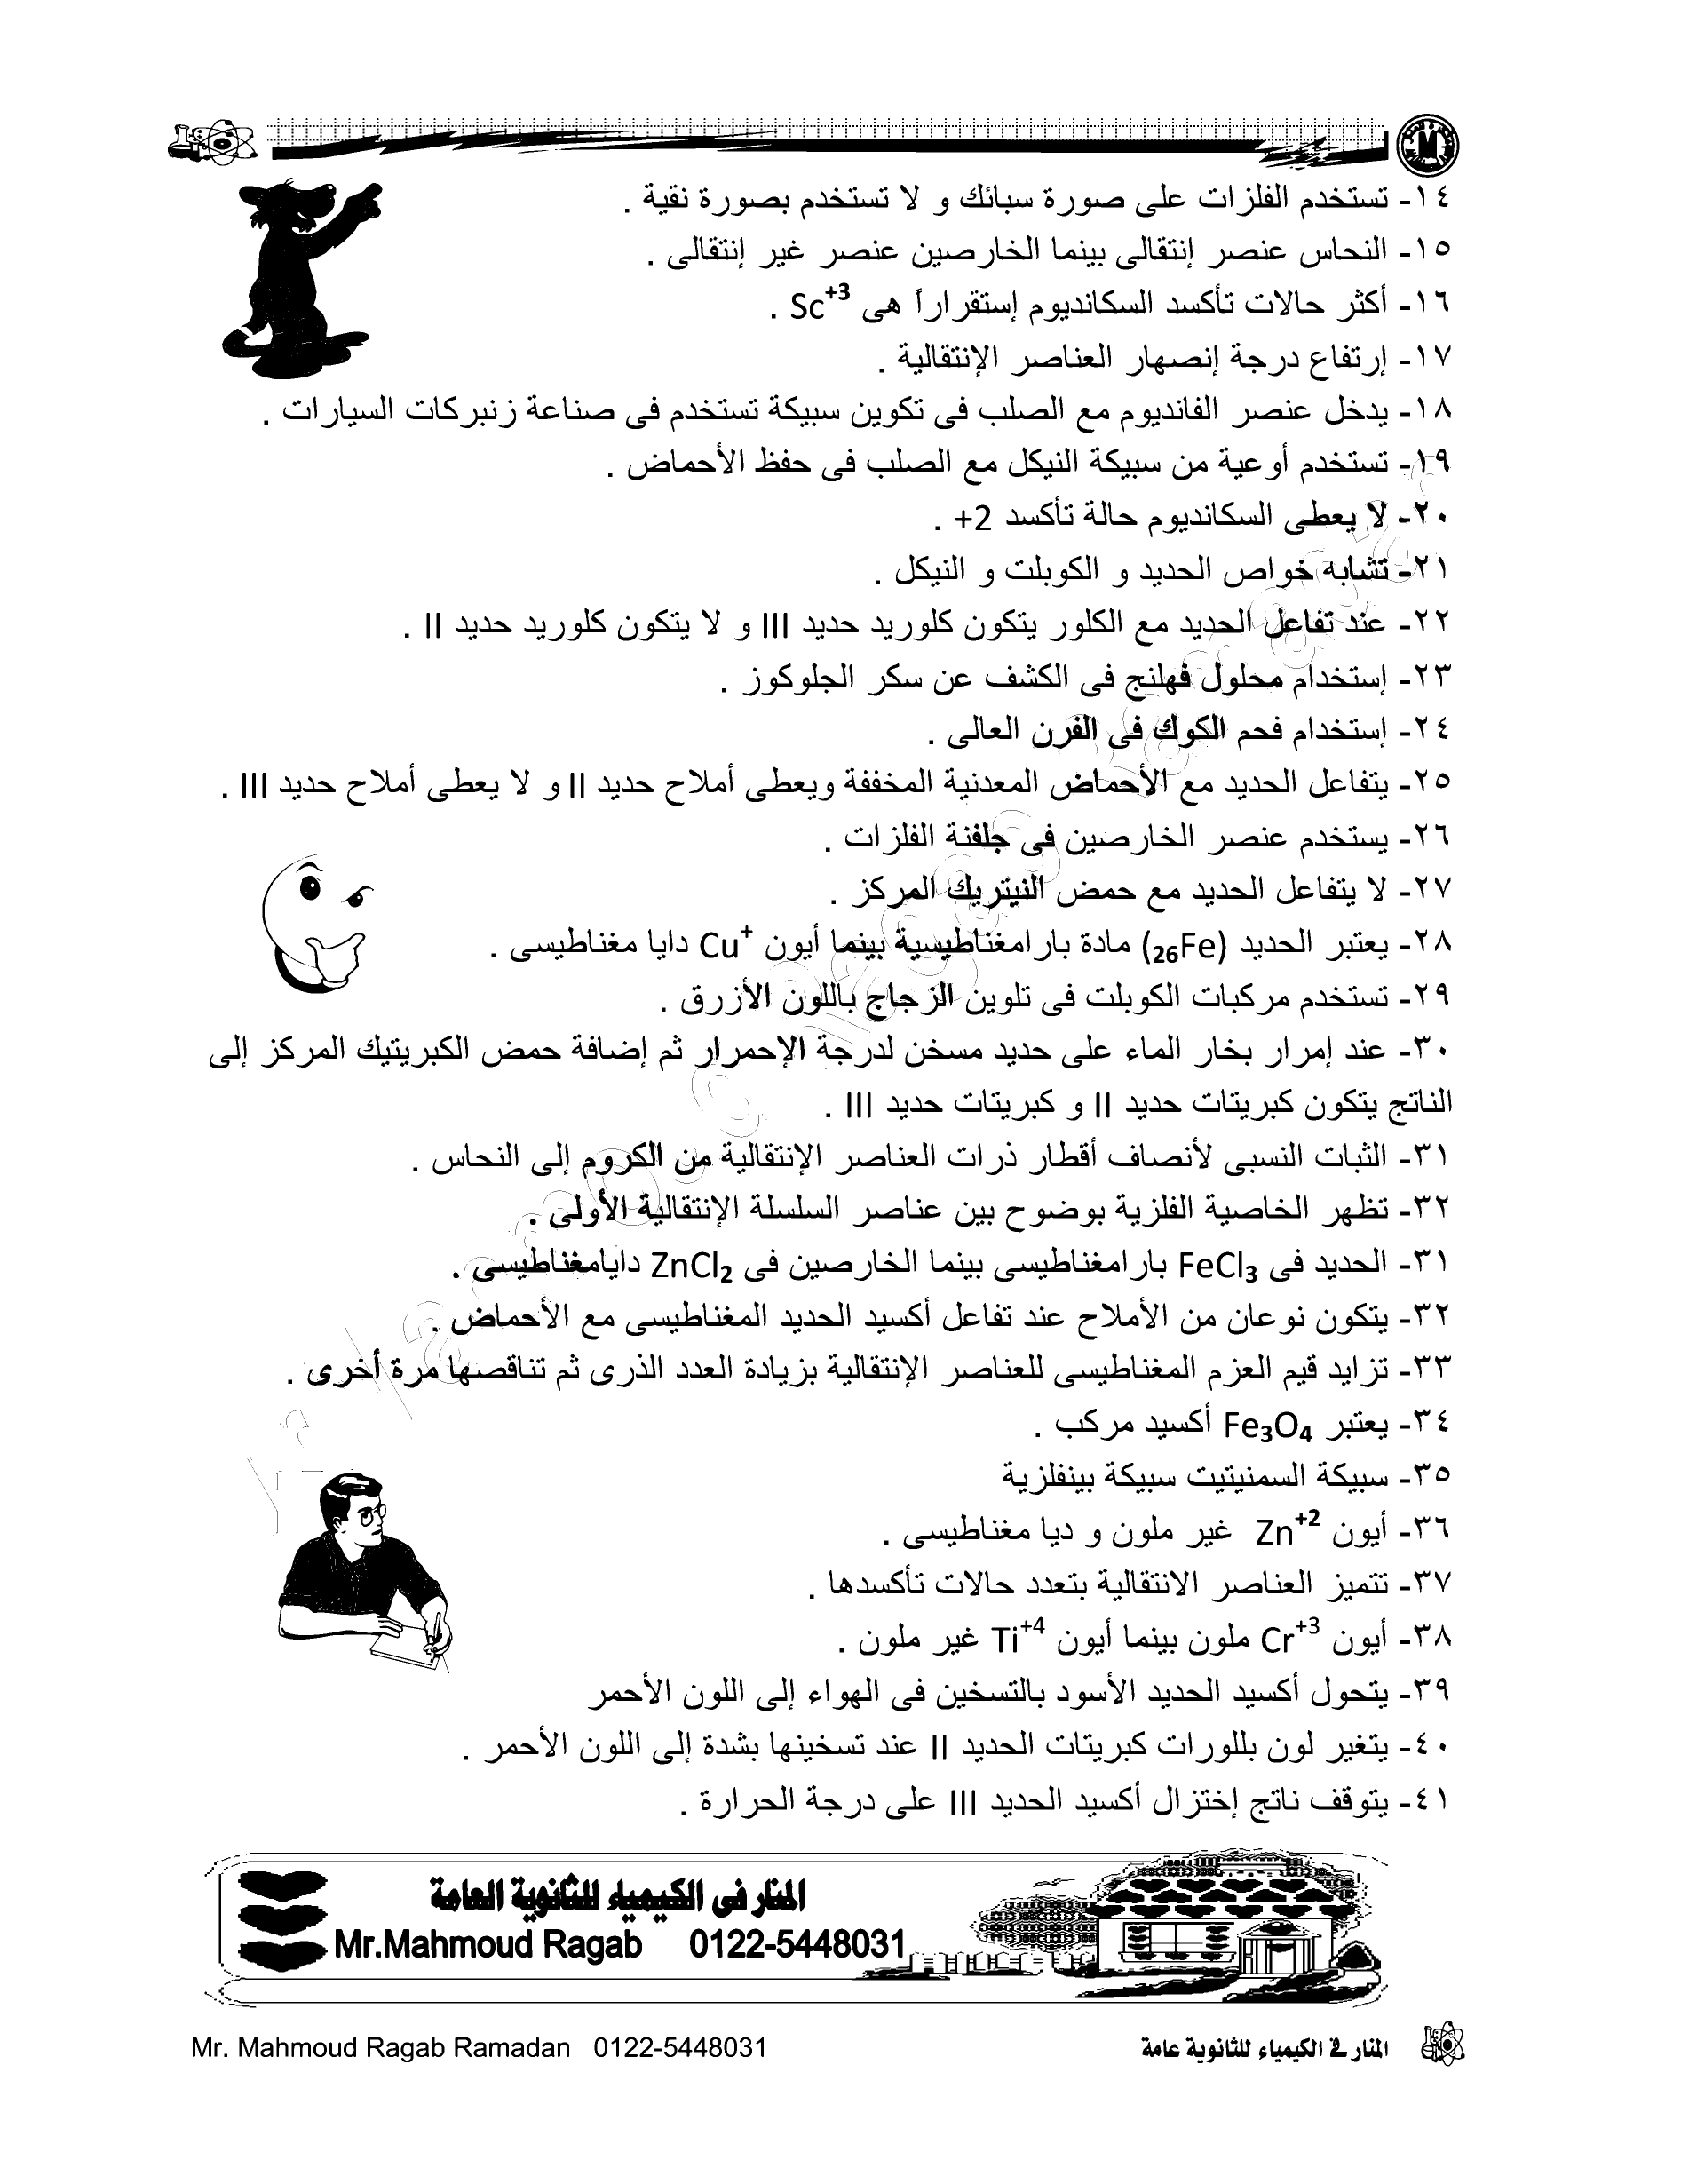 ١٤- تستخدم الفلزات على صورة سبائك و لا تستخدم بصورة نقية .
١٥- النحاس عنصر إنتقالى بينما الخارصين عنصر غير إنتقالى .
١٦- أكثر حالات تأكسد السكانديوم إستقراراً هى Sc⁺³ .
١٧- إرتفاع درجة إنصهار العناصر الإنتقالية .
١٨- يدخل عنصر الفانديوم مع الصلب فى تكوين سبيكة تستخدم فى صناعة زنبركات السيارات .
١٩- تستخدم أوعية من سبيكة النيكل مع الصلب فى حفظ الأحماض .
٢٠- لا يعطى السكانديوم حالة تأكسد 2+ .
٢١- تشابه خواص الحديد و الكوبلت و النيكل .
٢٢- عند تفاعل الحديد مع الكلور يتكون كلوريد حديد III و لا يتكون كلوريد حديد II .
٢٣- إستخدام محلول فهلنج فى الكشف عن سكر الجلوكوز .
٢٤- إستخدام فحم الكوك فى الفرن العالى .
٢٥- يتفاعل الحديد مع الأحماض المعدنية المخففة ويعطى أملاح حديد II و لا يعطى أملاح حديد III .
٢٦- يستخدم عنصر الخارصين فى جلفنة الفلزات .
٢٧- لا يتفاعل الحديد مع حمض النيتريك المركز .
٢٨- يعتبر الحديد (₂₆Fe) مادة بارامغناطيسية بينما أيون Cu⁺ دايا مغناطيسى .
٢٩- تستخدم مركبات الكوبلت فى تلوين الزجاج باللون الأزرق .
٣٠- عند إمرار بخار الماء على حديد مسخن لدرجة الإحمرار ثم إضافة حمض الكبريتيك المركز إلى
الناتج يتكون كبريتات حديد II و كبريتات حديد III .
٣١- الثبات النسبى لأنصاف أقطار ذرات العناصر الإنتقالية من الكروم إلى النحاس .
٣٢- تظهر الخاصية الفلزية بوضوح بين عناصر السلسلة الإنتقالية الأولى .
٣١- الحديد فى FeCl₃ بارامغناطيسى بينما الخارصين فى ZnCl₂ دايامغناطيسى .
٣٢- يتكون نوعان من الأملاح عند تفاعل أكسيد الحديد المغناطيسى مع الأحماض .
٣٣- تزايد قيم العزم المغناطيسى للعناصر الإنتقالية بزيادة العدد الذرى ثم تناقصها مرة أخرى .
٣٤- يعتبر Fe₃O₄ أكسيد مركب .
٣٥- سبيكة السمنيتيت سبيكة بينفلزية
٣٦- أيون Zn⁺² غير ملون و ديا مغناطيسى .
٣٧- تتميز العناصر الانتقالية بتعدد حالات تأكسدها .
٣٨- أيون Cr⁺³ ملون بينما أيون Ti⁺⁴ غير ملون .
٣٩- يتحول أكسيد الحديد الأسود بالتسخين فى الهواء إلى اللون الأحمر
٤٠- يتغير لون بللورات كبريتات الحديد II عند تسخينها بشدة إلى اللون الأحمر .
٤١- يتوقف ناتج إختزال أكسيد الحديد III على درجة الحرارة .
المنار فى الكيمياء للثانوية العامة
Mr.Mahmoud Ragab 0122-5448031
المنار فى الكيمياء للثانوية عامة
Mr. Mahmoud Ragab Ramadan 0122-5448031